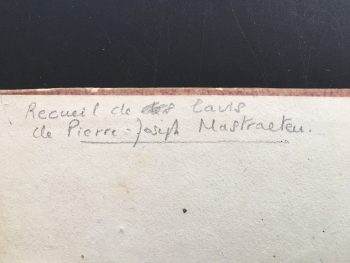 Recueil de lavis
de Pierre-Joseph Mastraeten.